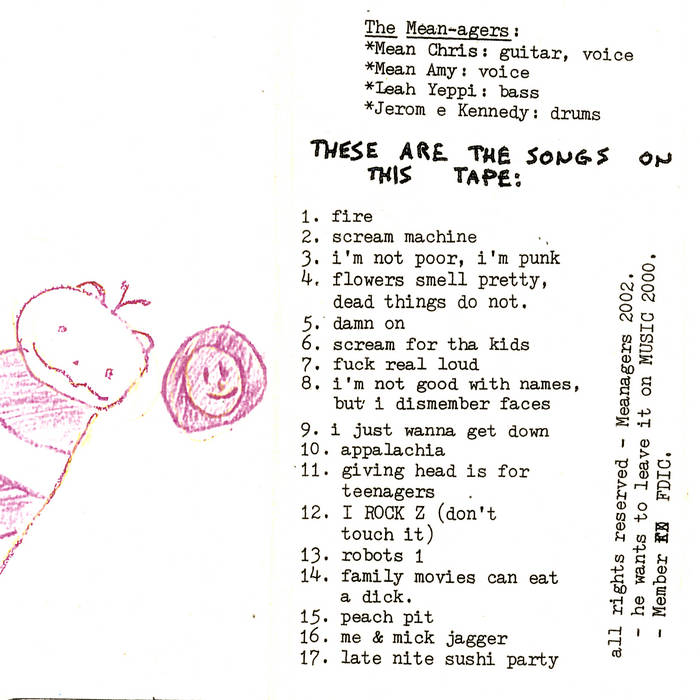 The Mean-agers:
*Mean Chris: guitar, voice
*Mean Amy: voice
*Leah Yeppi: bass
*Jerom e Kennedy: drums
THESE ARE THE SONGS ON
THIS TAPE:
1. fire
2. scream machine
3. i'm not poor, i'm punk
4. flowers smell pretty,
dead things do not.
5. damn on
6. scream for tha kids
7. fuck real loud
8. i'm not good with names,
but i dismember faces
9. i just wanna get down
10. appalachia
11. giving head is for
teenagers
12. I ROCK Z (don't
touch it)
13. robots 1
14. family movies can eat
a dick.
15. peach pit
16. me & mick jagger
17. late nite sushi party
all rights reserved - Meanagers 2002.
- he wants to leave it on MUSIC 2000.
- Member FDIC.